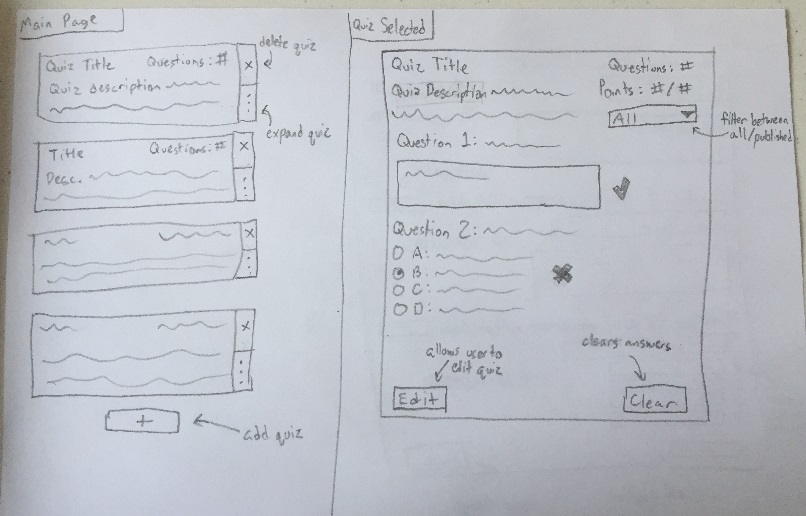 Main Page
Quiz Title Questions: #
X
delete quiz
Quiz description
expand quiz
Title Questions: #
X
Desc.
X
X
+
add quiz
Quiz Selected
Quiz Title Questions: #
Quiz Description Points: #/#
All
filter between
all/published
Question 1:
Question 2:
A:
B:
C:
D:
allows user to
edit quiz
clears answers
Edit
Clear